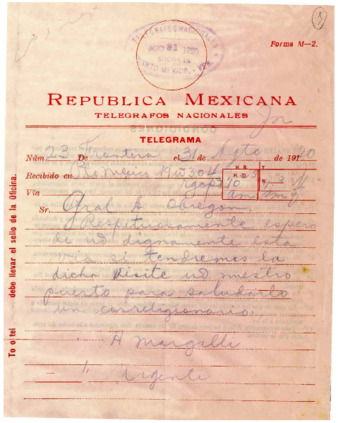 Forma M-2.
AGO 31 1920
REPUBLICA MEXICANA
TELEGRAFOS NACIONALES
TELEGRAMA
Núm 23 De Frontera el 31 Agto 1920
Recibido en
Vía
Sr. Gral A Obregon
Respetuosamente espero
de ud dignamente esta
via si tendremos la
dicha visite ud nuestro
puerto para saludarlo
un correligionario.
A Margalli
Urgente
Todo tel debe llevar el sello de la Oficina.